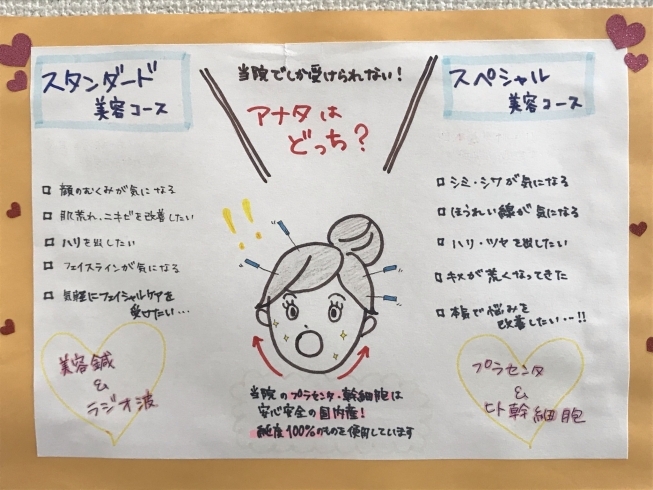 スタンダード
美容コース
当院でしか受けられない!
アナタは
どっち?
スペシャル
美容コース
□ 顔のむくみが気になる
□ 肌荒れ、ニキビを改善したい
□ ハリを出したい
□ フェイスラインが気になる
□ 気軽にフェイシャルケアを
受けたい…
美容鍼
&
ラジオ波
!!
□ シミ・シワが気になる
□ ほうれい線が気になる
□ ハリ・ツヤを出したい
□ キメが荒くなってきた
□ 本気で悩みを
改善したい…!!
プラセンタ
&
ヒト幹細胞
当院のプラセンタ・幹細胞は
安心安全の国内産!
純度100%のものを使用しています